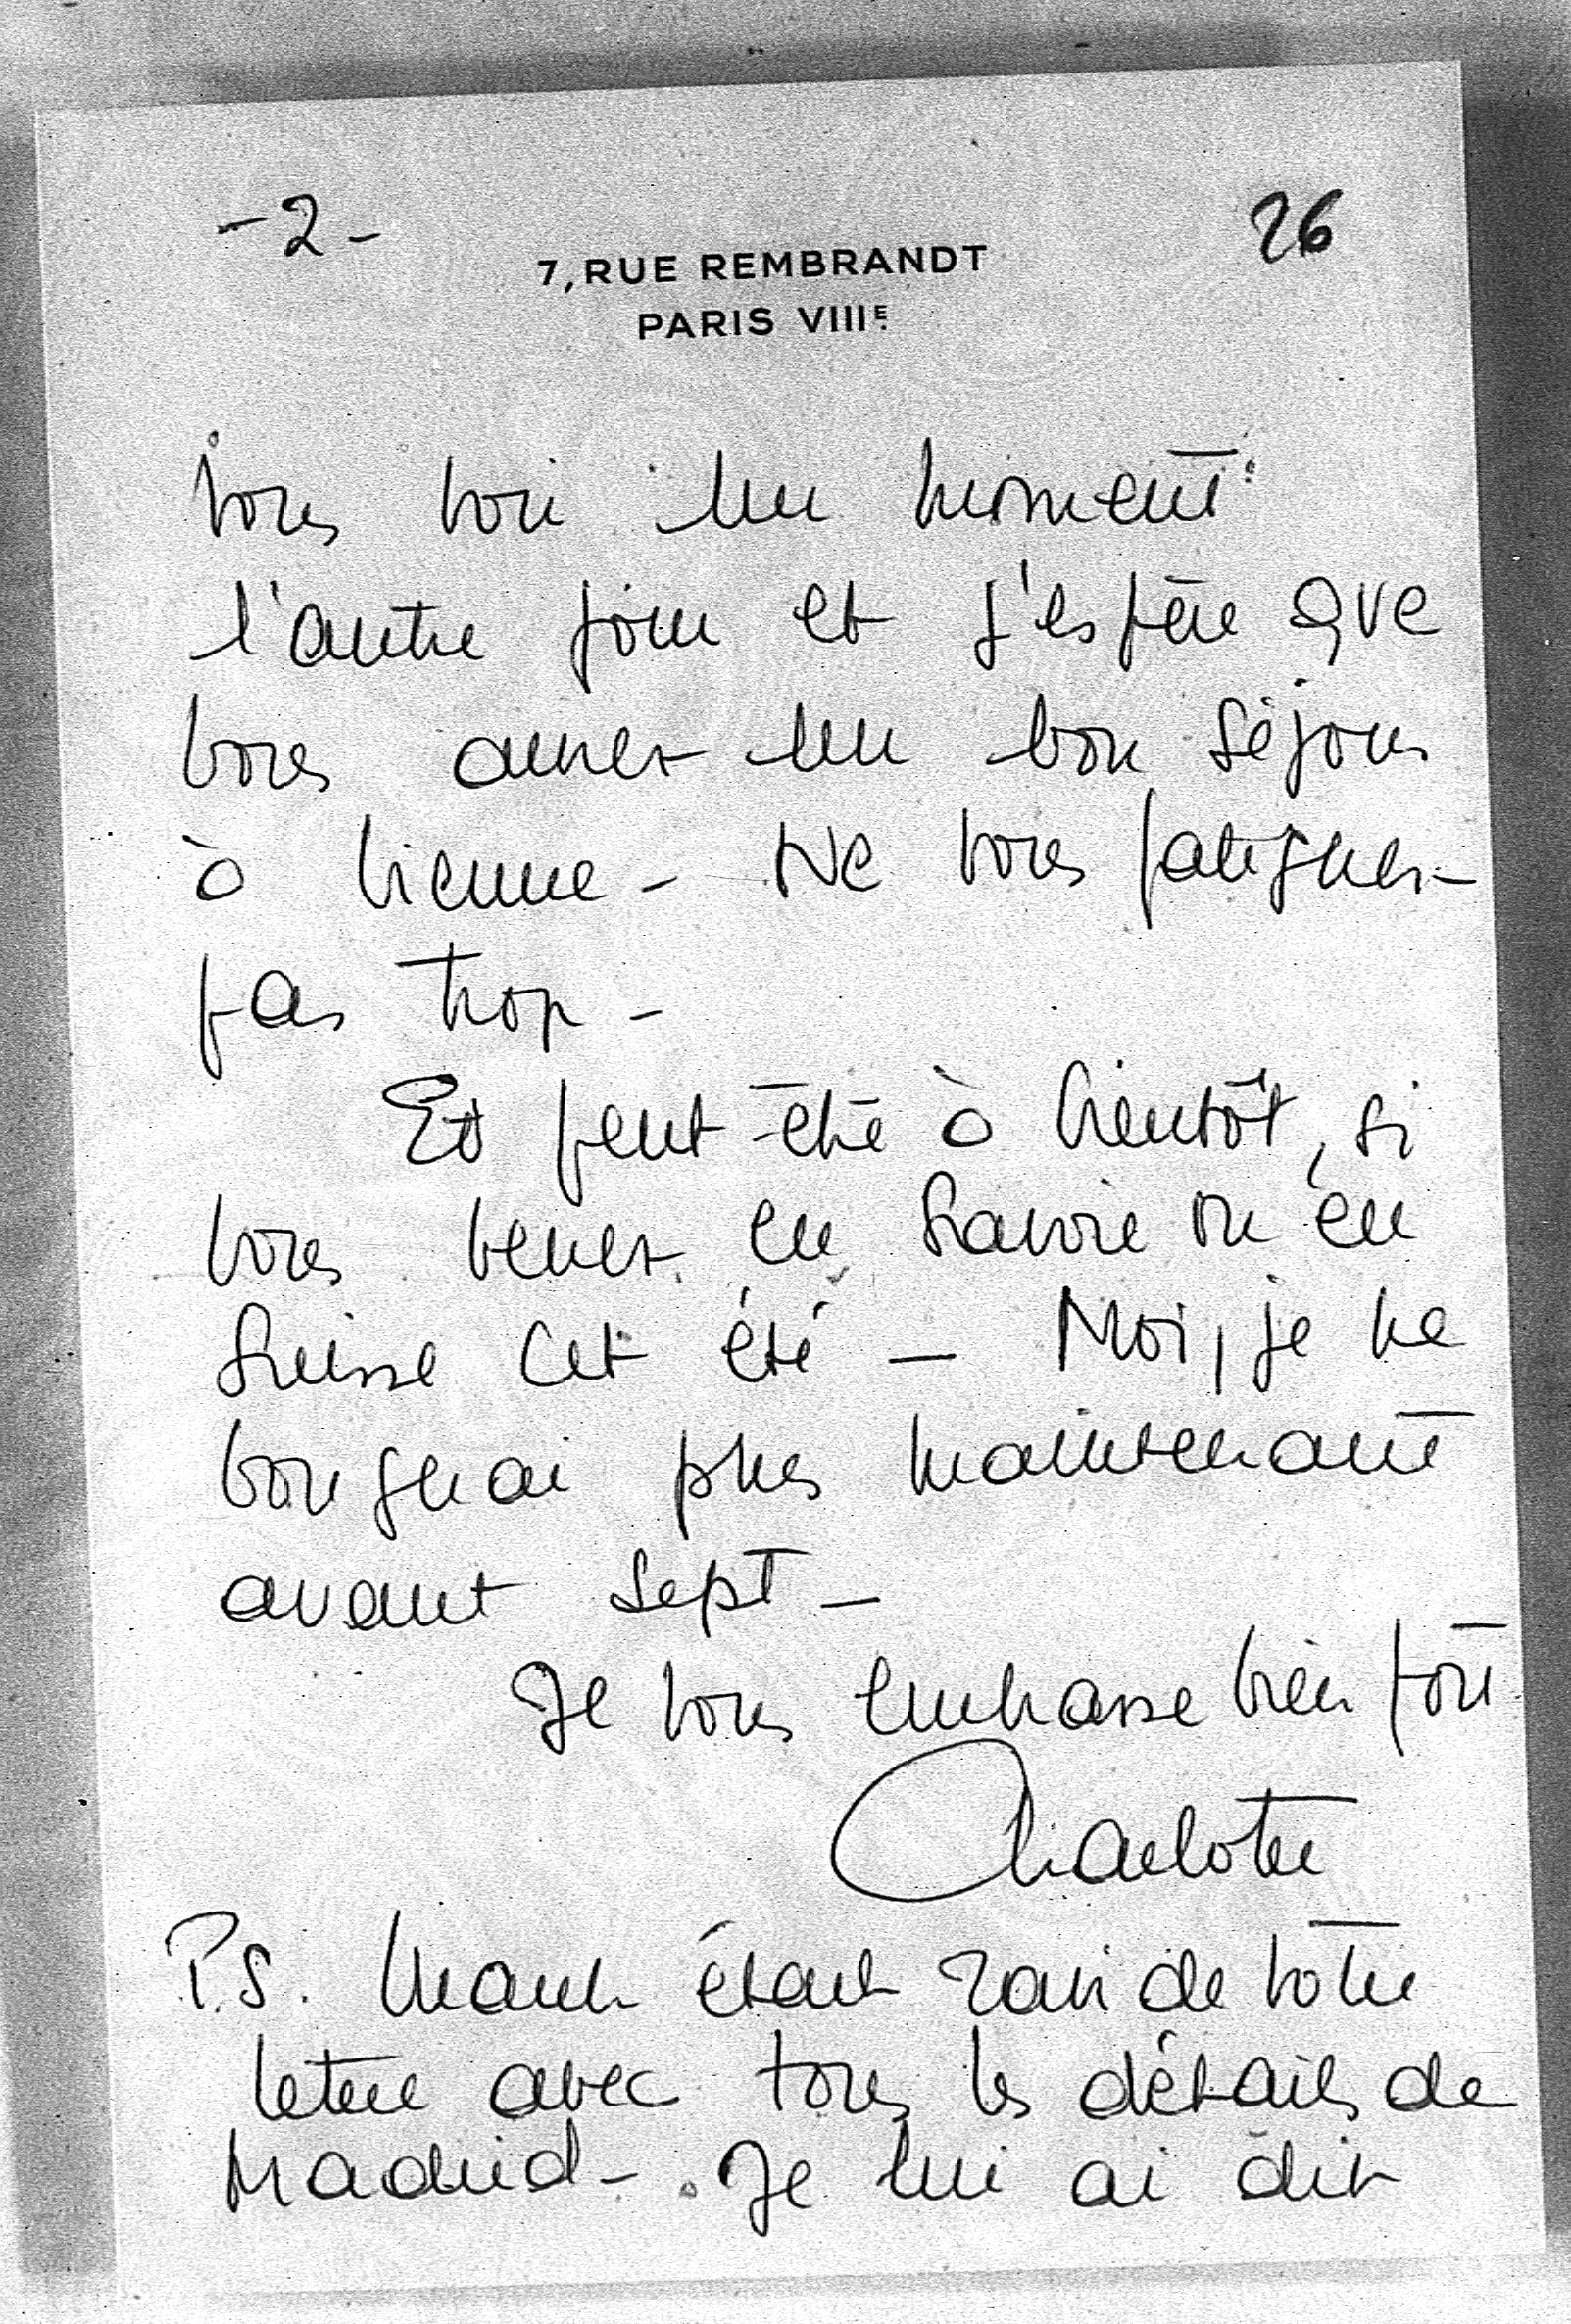 -2-
26
7, RUE REMBRANDT
PARIS VIIIE.
vous voir un moment
l'autre jour et j'espère que
vous aurez un bon séjour
à Vienne - Ne vous fatiguez-
pas trop -
Et peut-être à bientôt, si
vous venez en Savoie ou en
Suisse cet été - Moi, je ne
bougerai plus maintenant
avant sept -
Je vous embrasse bien fort
Charlotte
P.S. était ravi de votre
lettre avec tous les détails de
Madrid - Je lui ai dit